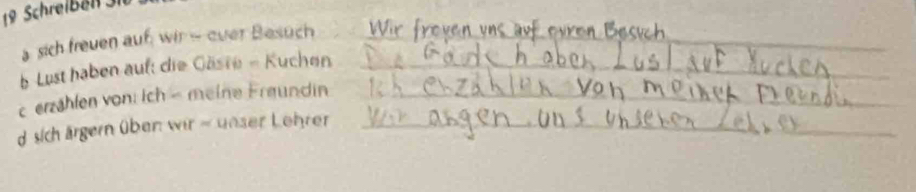 19 Schreiben
a sich freuen auf: wir – euer Besuch Wir freuen uns auf euren Besuch
b Lust haben auf: die Gäste – Kuchen haben Lust auf Kuchen
c erzählen von: Ich – meine Freundin Ich erzählen von meiner Freundin
d sich ärgern über: wir – unser Lehrer Wir argen uns unseren Lehrer